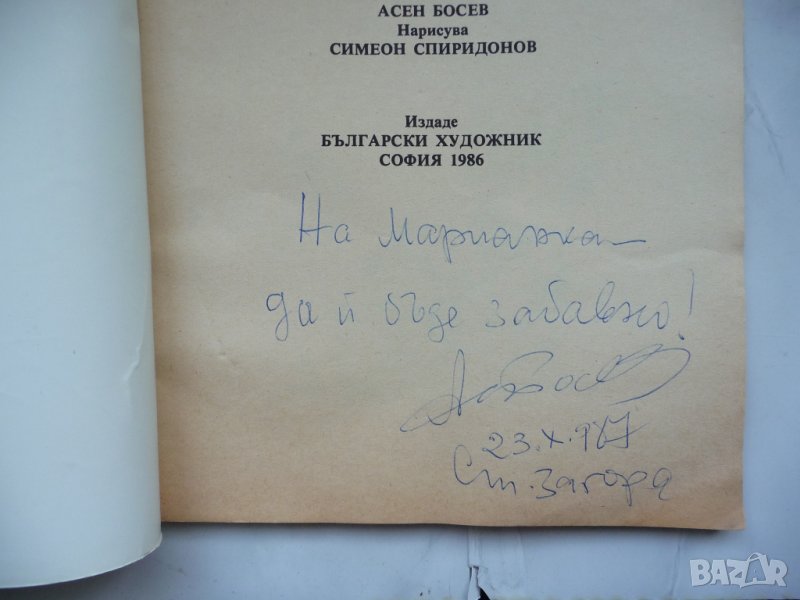 АСЕН БОСЕВ
Нарисува
СИМЕОН СПИРИДОНОВ
Издаде
БЪЛГАРСКИ ХУДОЖНИК
СОФИЯ 1986
На Марианка —
да ѝ бъде забавно!
Ас Босев
23.X.987
Ст. Загора
BAZAR